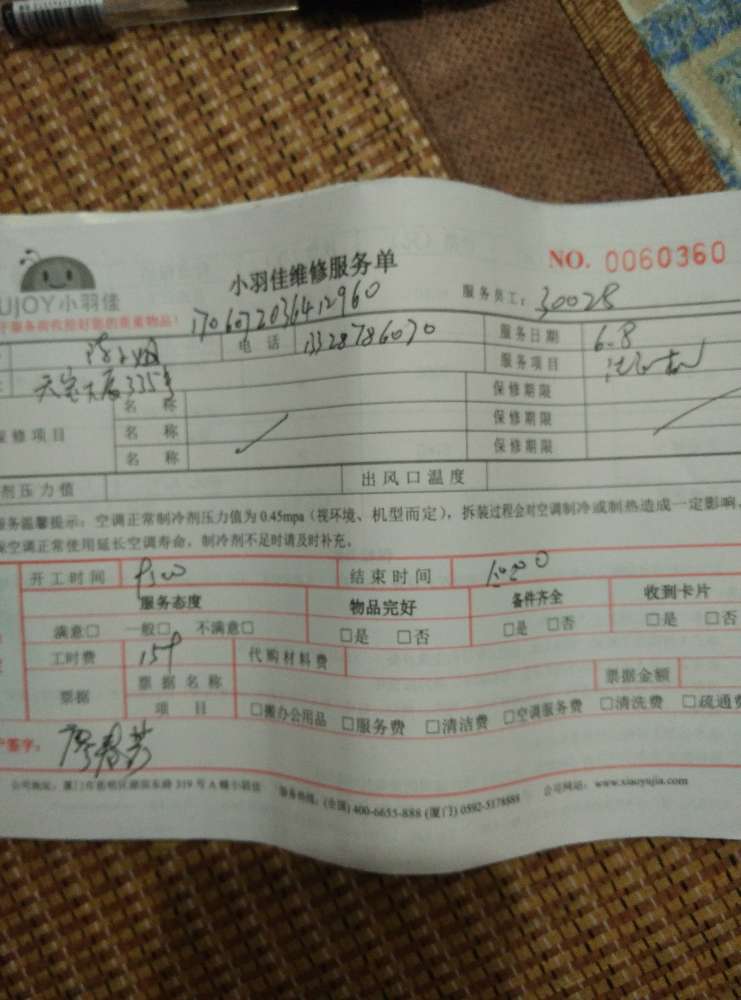 UJOY小羽佳
小羽佳维修服务单
NO. 0060360
服务员工: 30028
1706072036412960
电 话 13328786070 服务日期 6.8
服务项目
天宝大厦335号
名 称 保修期限
保修项目 名 称 保修期限
名 称 保修期限
剂压力值 出风口温度
服务温馨提示: 空调正常制冷剂压力值为 0.45mpa (视环境、机型而定), 拆装过程会对空调制冷或制热造成一定影响,
保空调正常使用延长空调寿命, 制冷剂不足时请及时补充。
开工时间 结束时间
服务态度 物品完好 备件齐全 收到卡片
满意□ 一般□ 不满意□ □是 □否 □是 □否 □是 □否
工时费 159 代购材料费
票据 票据名称 票据金额
项 目 □搬办公用品 □服务费 □清洁费 □空调服务费 □清洗费 □疏通费
签字: 廖春芳
服务热线: (全国) 400-6655-888 (厦门) 0592-5178888 公司网站: www.xiaoyujia.com